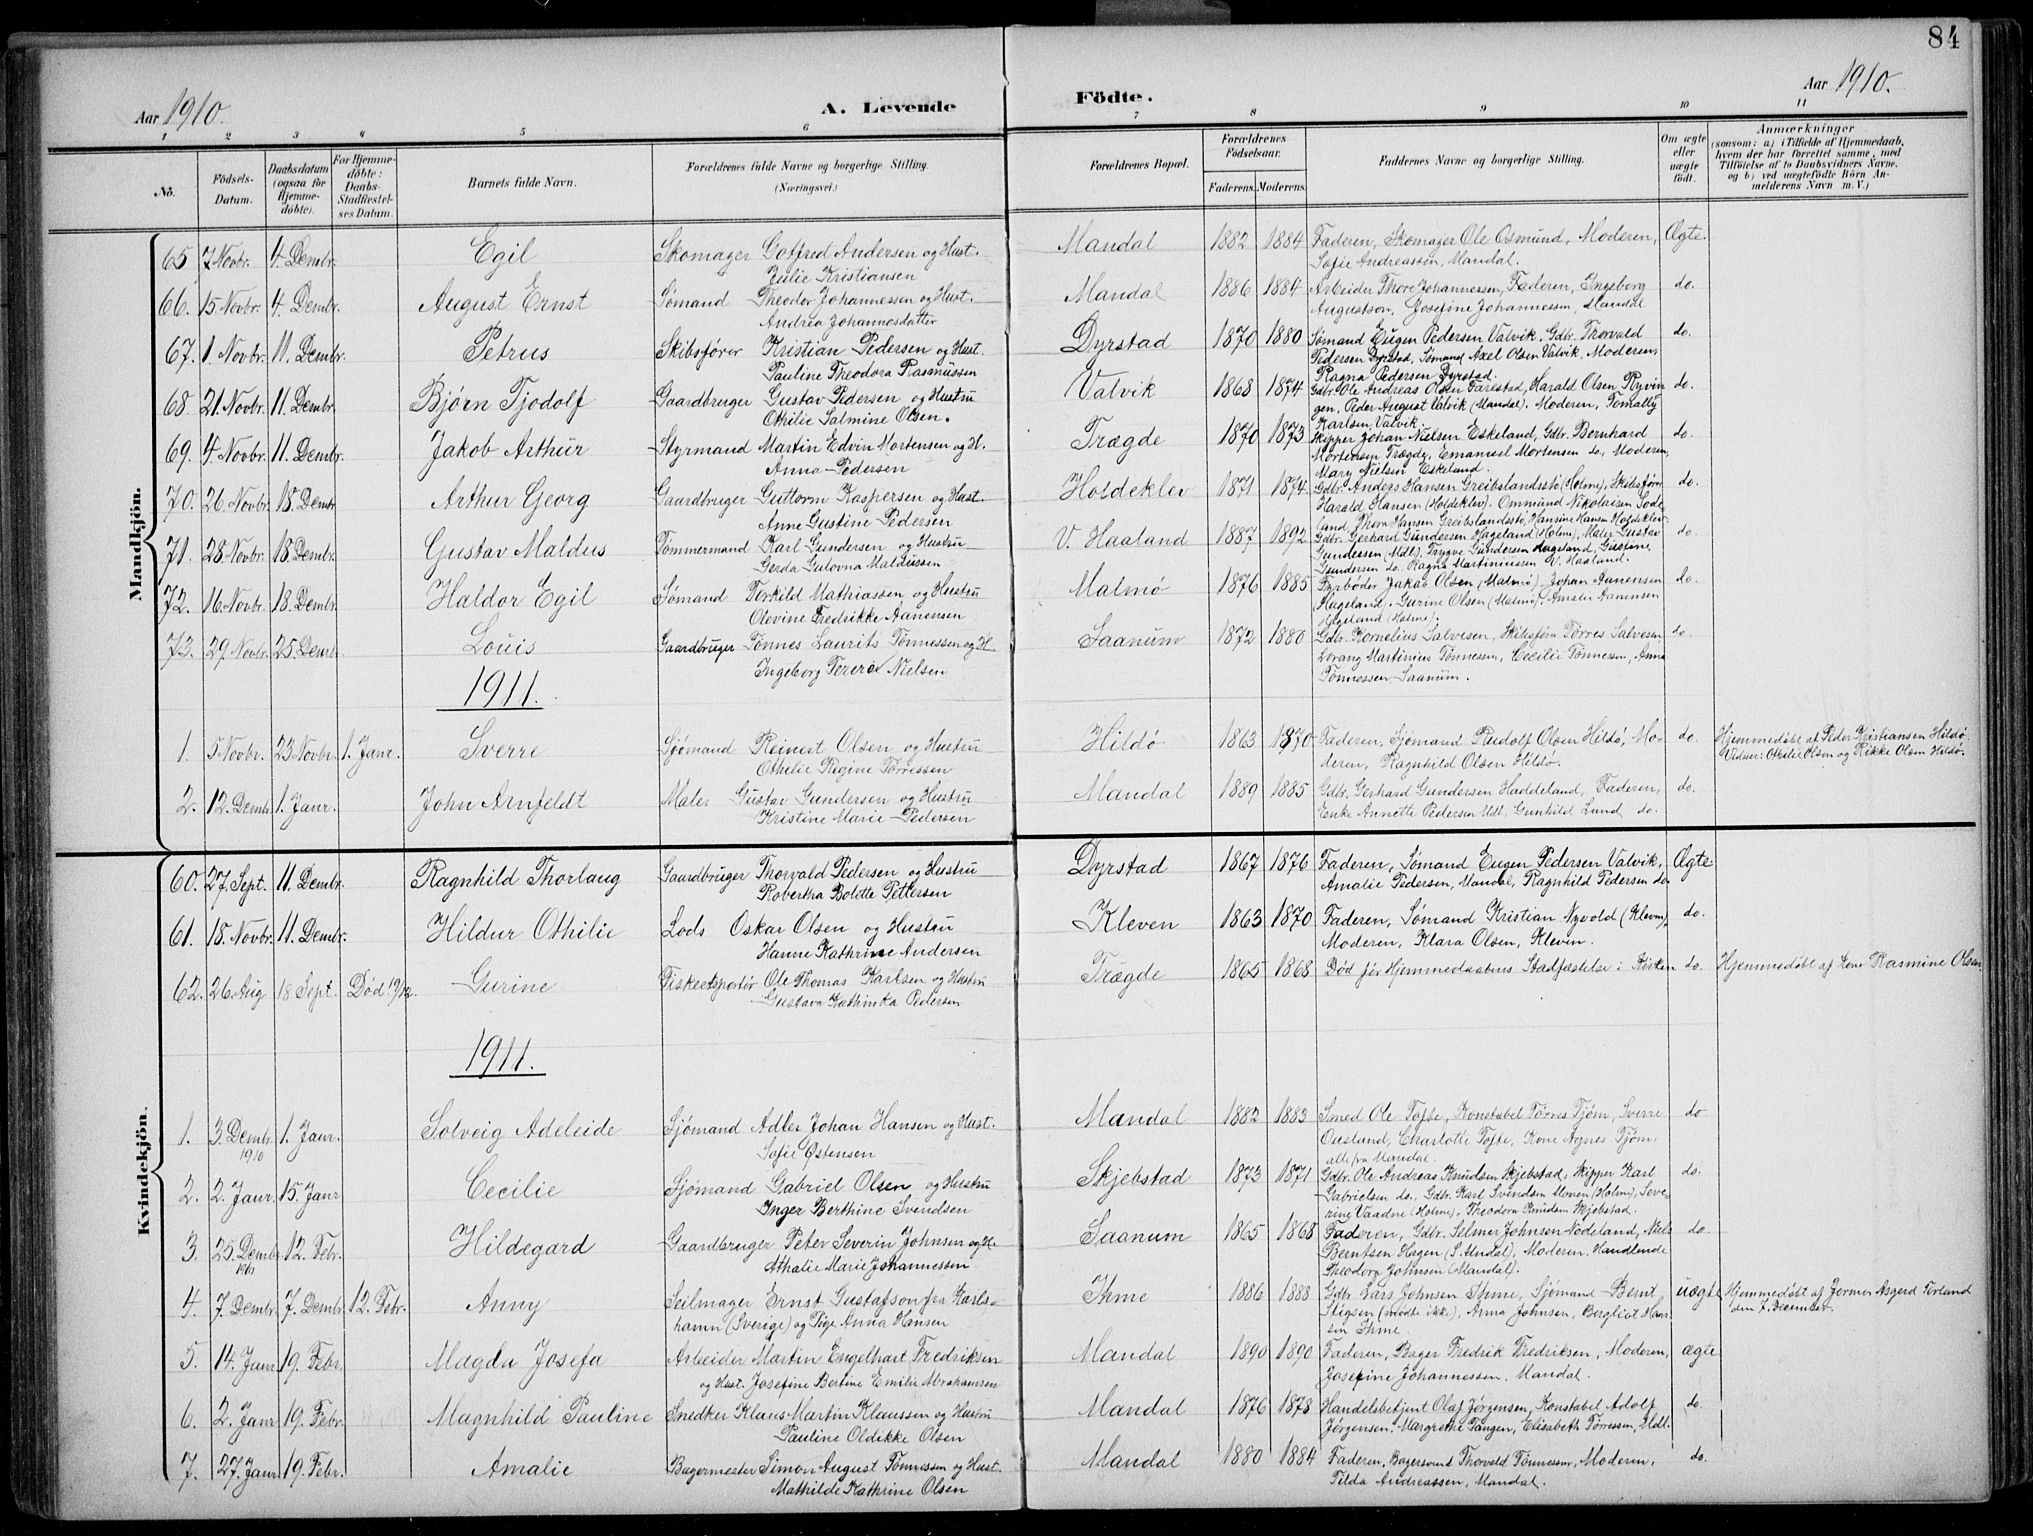 84
Aar 1910.
A. Levende Födte.
Aar 1910.
1 2 3 4 5 6 7 8 9 10 11
No.
Födsels-Datum.
Daabsdatum (ogsaa for Hjemmedöbte).
For Hjemmedöbte: Daabs-Stadfæstelses Datum.
Barnets fulde Navn.
Forældrenes fulde Navne og borgerlige Stilling. (Næringsvei.)
Forældrenes Bopæl.
Forældrenes Födselsaar.
Faderens. Moderens.
Faddernes Navne og borgerlige Stilling.
Om ægte eller uægte födt.
Anmærkninger
(saasom: a) i Tilfælde af Hjemmedaab, hvem der har forrettet samme, med Tilföielse af to Daabsvidners Navne, og b) ved uægtefödte Börn Anmelderens Navn m. V.)
Mandkjön.
65 7 Novbr. 4. Dembr. Egil Skomager Gotfred Andersen og Hust. Mandal 1882 1884 Faderen, Skomager Ole Osmund, Moderen, Ægte.
Julie Kristiansen Sofie Andreassen, Mandal.
66. 15. Novbr. 4. Dembr. August Ernst Sømand Theodor Johannessen og Hust. Mandal 1886 1884 Arbeider Thore Johannessen, Faderen, Ingeborg do.
Andrea Johannesdatter Augustson, Josefine Johannessen, Mandal
67. 1. Novbr. 11. Dembr. Petrus Skibsfører Kristian Pedersen og Hust. Dyrstad 1870 1880 Sømand Eugen Pedersen Valvik, Gdbr. Thorvald do.
Pauline Theodora Rasmussen Pedersen Dyrstad, Sømand Axel Olsen Valvik, Moderen,
Ragna Pedersen Dyrstad.
68 21. Novbr. 11. Dembr. Bjørn Tjodolf Gaardbruger Gustav Pedersen og Hustru Valvik 1868 1874 Gdbr. Ole Andreas Olsen Farestad, Harald Olsen Ryvin do.
Othilie Salmine Olsen. gen, Peder August Valvik (Mandal), Moderen, Tomally
Karlsen, Valvik.
69. 4. Novbr. 11. Dembr. Jakob Arthur Styrmand Martin Edvin Mortensen og H. Trægde 1870 1873 Skipper Johan Nielsen Eskeland, Gdbr. Bernhard do.
Anna Pedersen Mortensen Trægde, Emanuel Mortensen do., Moderen,
Mary Nielsen Eskeland.
70. 26. Novbr. 18. Dembr Arthur Georg Gaardbruger Guttorm Kaspersen og Hust. Holdeklev 1871 1874. Gdbr. Anders Hansen Greibslandsstø (Holme), Skibsfører do.
Anne Gustine Pedersen Harald Hansen (Holdeklev). Ommund Nikolaisen Sode
land, Thora Hansen Greibslandsstø, Hansine Hansen Holdeklev
71. 28. Novbr. 18. Dembr. Gustav Maldus Tømmermand Karl Gundersen og Hustru V. Haaland 1887 1892 Gdbr. Gerhard Gundersen Hageland (Holme), Maler Gustav do.
Gerda Gulovna Maldussen Gundersen (Mdl), Trygve Gundersen Hageland, Gustine
Gundersen do. Ragna Martiniussen V. Haaland.
72. 16. Novbr. 18. Dembr. Haldor Egil Sømand Torkild Mathiassen og Hustru Malmø 1876 1885 Fyrbøder Jakob Olsen (Malmø), Johan Aanensen do.
Olevine Fredrikke Aanensen Hageland, Gurine Olsen (Malmø), Amalie Aanensen
Hageland (Holme).
73. 29. Novbr. 25. Dembr. Louis Gaardbruger Tønnes Laurits Tønnessen og H. Saanum 1872 1880 Gdbr. Kornelius Salvesen, Skibsfører Tørres Salvesen do.
Ingeborg Terese Nielsen Lorang Martinius Tønnessen, Cecilie Tønnessen, Anna
Tønnessen Saanum.
1911.
1. 5 Novbr. 23 Novbr. 1. Janr. Sverre Sjømand Reinert Olsen og Hustru Hildø 1863 1870 Faderen, Sjømand Rudolf Olsen Hildø, Mo- do. Hjemmedøbt af Peder Kristiansen Hildø.
Othelie Regine Tørressen deren, Ragnhild Olsen Hildø. Vidner: Othilie Olsen og Rikke Olsen Hildø.
2. 12. Dembr. 1. Janr. John Arnfeldt Maler Gustav Gundersen og Hustru Mandal 1889 1885 Gdbr. Gerhard Gundersen Haddeland, Faderen, do.
Kristine Marie Pedersen Enke Annette Pedersen Mdl, Gunhild Lund do.
Kvindekjön.
60. 27. Sept. 11. Dembr. Ragnhild Thorlaug Gaardbruger Thorvald Pedersen og Hustru Dyrstad 1867 1876 Faderen, Sømand Eugen Pedersen Valvik, Ægte
Robertha Bolette Pettersen Amalie Pedersen, Mandal, Ragnhild Pedersen do
61. 18. Novbr. 11. Dembr. Hildur Othilie Lods Oskar Olsen og Hustru Kleven 1863 1870 Faderen, Sømand Kristian Nyvold (Kleven), do.
Hanne Kathrine Andersen Moderen, Klara Olsen, Kleven.
62. 26. Aug 18 Sept. Død Gurine Fiskeexportør Ole Thomas Karlsen og Hustru Trægde 1865 1868 Død før Hjemmedaabens Stadfæstelse i Kirken do. Hjemmedøbt af Kone Rasmine Olsen
Gustava Kathinka Pedersen
1911.
1. 3. Dembr. 1. Janr. Solveig Adeleide Sjømand Adler Johan Hansen og Hust. Mandal 1882 1883 Smed Ole Tofte, Konstabel Tørres Tjøm, Sverre do
1910 Sofie Østensen Ousland, Charlotte Tofte, Kone Agnes Tjøm,
alle fra Mandal.
2. 2. Janr. 15. Janr Cecilie Sjømand Gabriel Olsen og Hustru Skjebstad 1873 1871 Gdbr. Ole Andreas Knudsen Skjebstad, Skipper Karl do.
Inger Berthine Svendsen Gabrielsen do, Gdbr. Karl Svendsen Monen (Holme), Seve-
rine Vaadne (Holme), Theodora Knudsen Skjebstad.
3. 25. Dembr. 12. Febr. Hildegard Gaardbruger Peter Severin Johnsen og H. Saanum 1865 1868 Faderen, Gdbr. Selmer Johnsen Nodeland, Niels do.
Athalie Marie Johannessen Berntsen Hagen (S. Undal), Moderen, Handlende
Theodora Johnsen (Mandal).
4. 7. Dembr. 7. Dembr. 12. Febr. Anny Seilmager Ernst Gustafson fra Karls- Ihme 1886 1888 Gdbr. Lars Johnsen Ihme, Sjømand Bernt uægte Hjemmedøbt af Jormor Asgerd Forland
hamn (Sverige) og Pige Anna Hansen Stigsen (mødte ikke), Anna Johnsen, Bergliot Han- den 7. December.
sen Ihme.
5. 14. Janr. 19. Febr. Magda Josefa Arbeider Martin Engelhart Fredriksen Mandal 1890 1890 Faderen, Bager Fredrik Fredriksen, Moderen, ægte
og Hust. Josefine Bertine Emilie Abrahamsen Josefine Johannessen, Mandal.
6. 2. Janr. 19. Febr. Magnhild Pauline Snedker Klaus Martin Klaussen og Hustru Mandal 1876 1878 Handelsbetjent Olaf Jørgensen, Konstabel Adolf do.
Pauline Oldikke Olsen Jørgensen, Margrethe Tangen, Elisabeth Tørressen, Mdl.
7. 27. Janr. 19. Febr. Amalie Bagermester Simon August Tønnessen og Hust. Mandal 1880 1884 Faderen, Bagersvend Thorvald Tønnessen, Moderen, do.
Mathilde Kathrine Olsen Tilda Andreassen, Mandal.